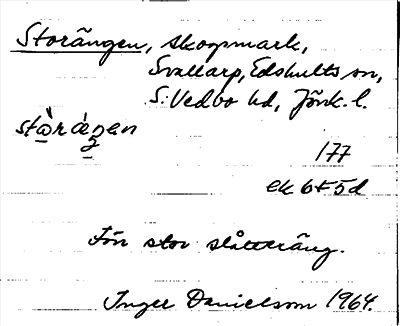 Storängen, skogsmark,
Svallarp, Edshults sn,
S: Vedbo hd, Jönk. l.
stòrǽŋen
177
ek 6f5d
Förr stor slåtteräng.
Inger Danielsson 1964.